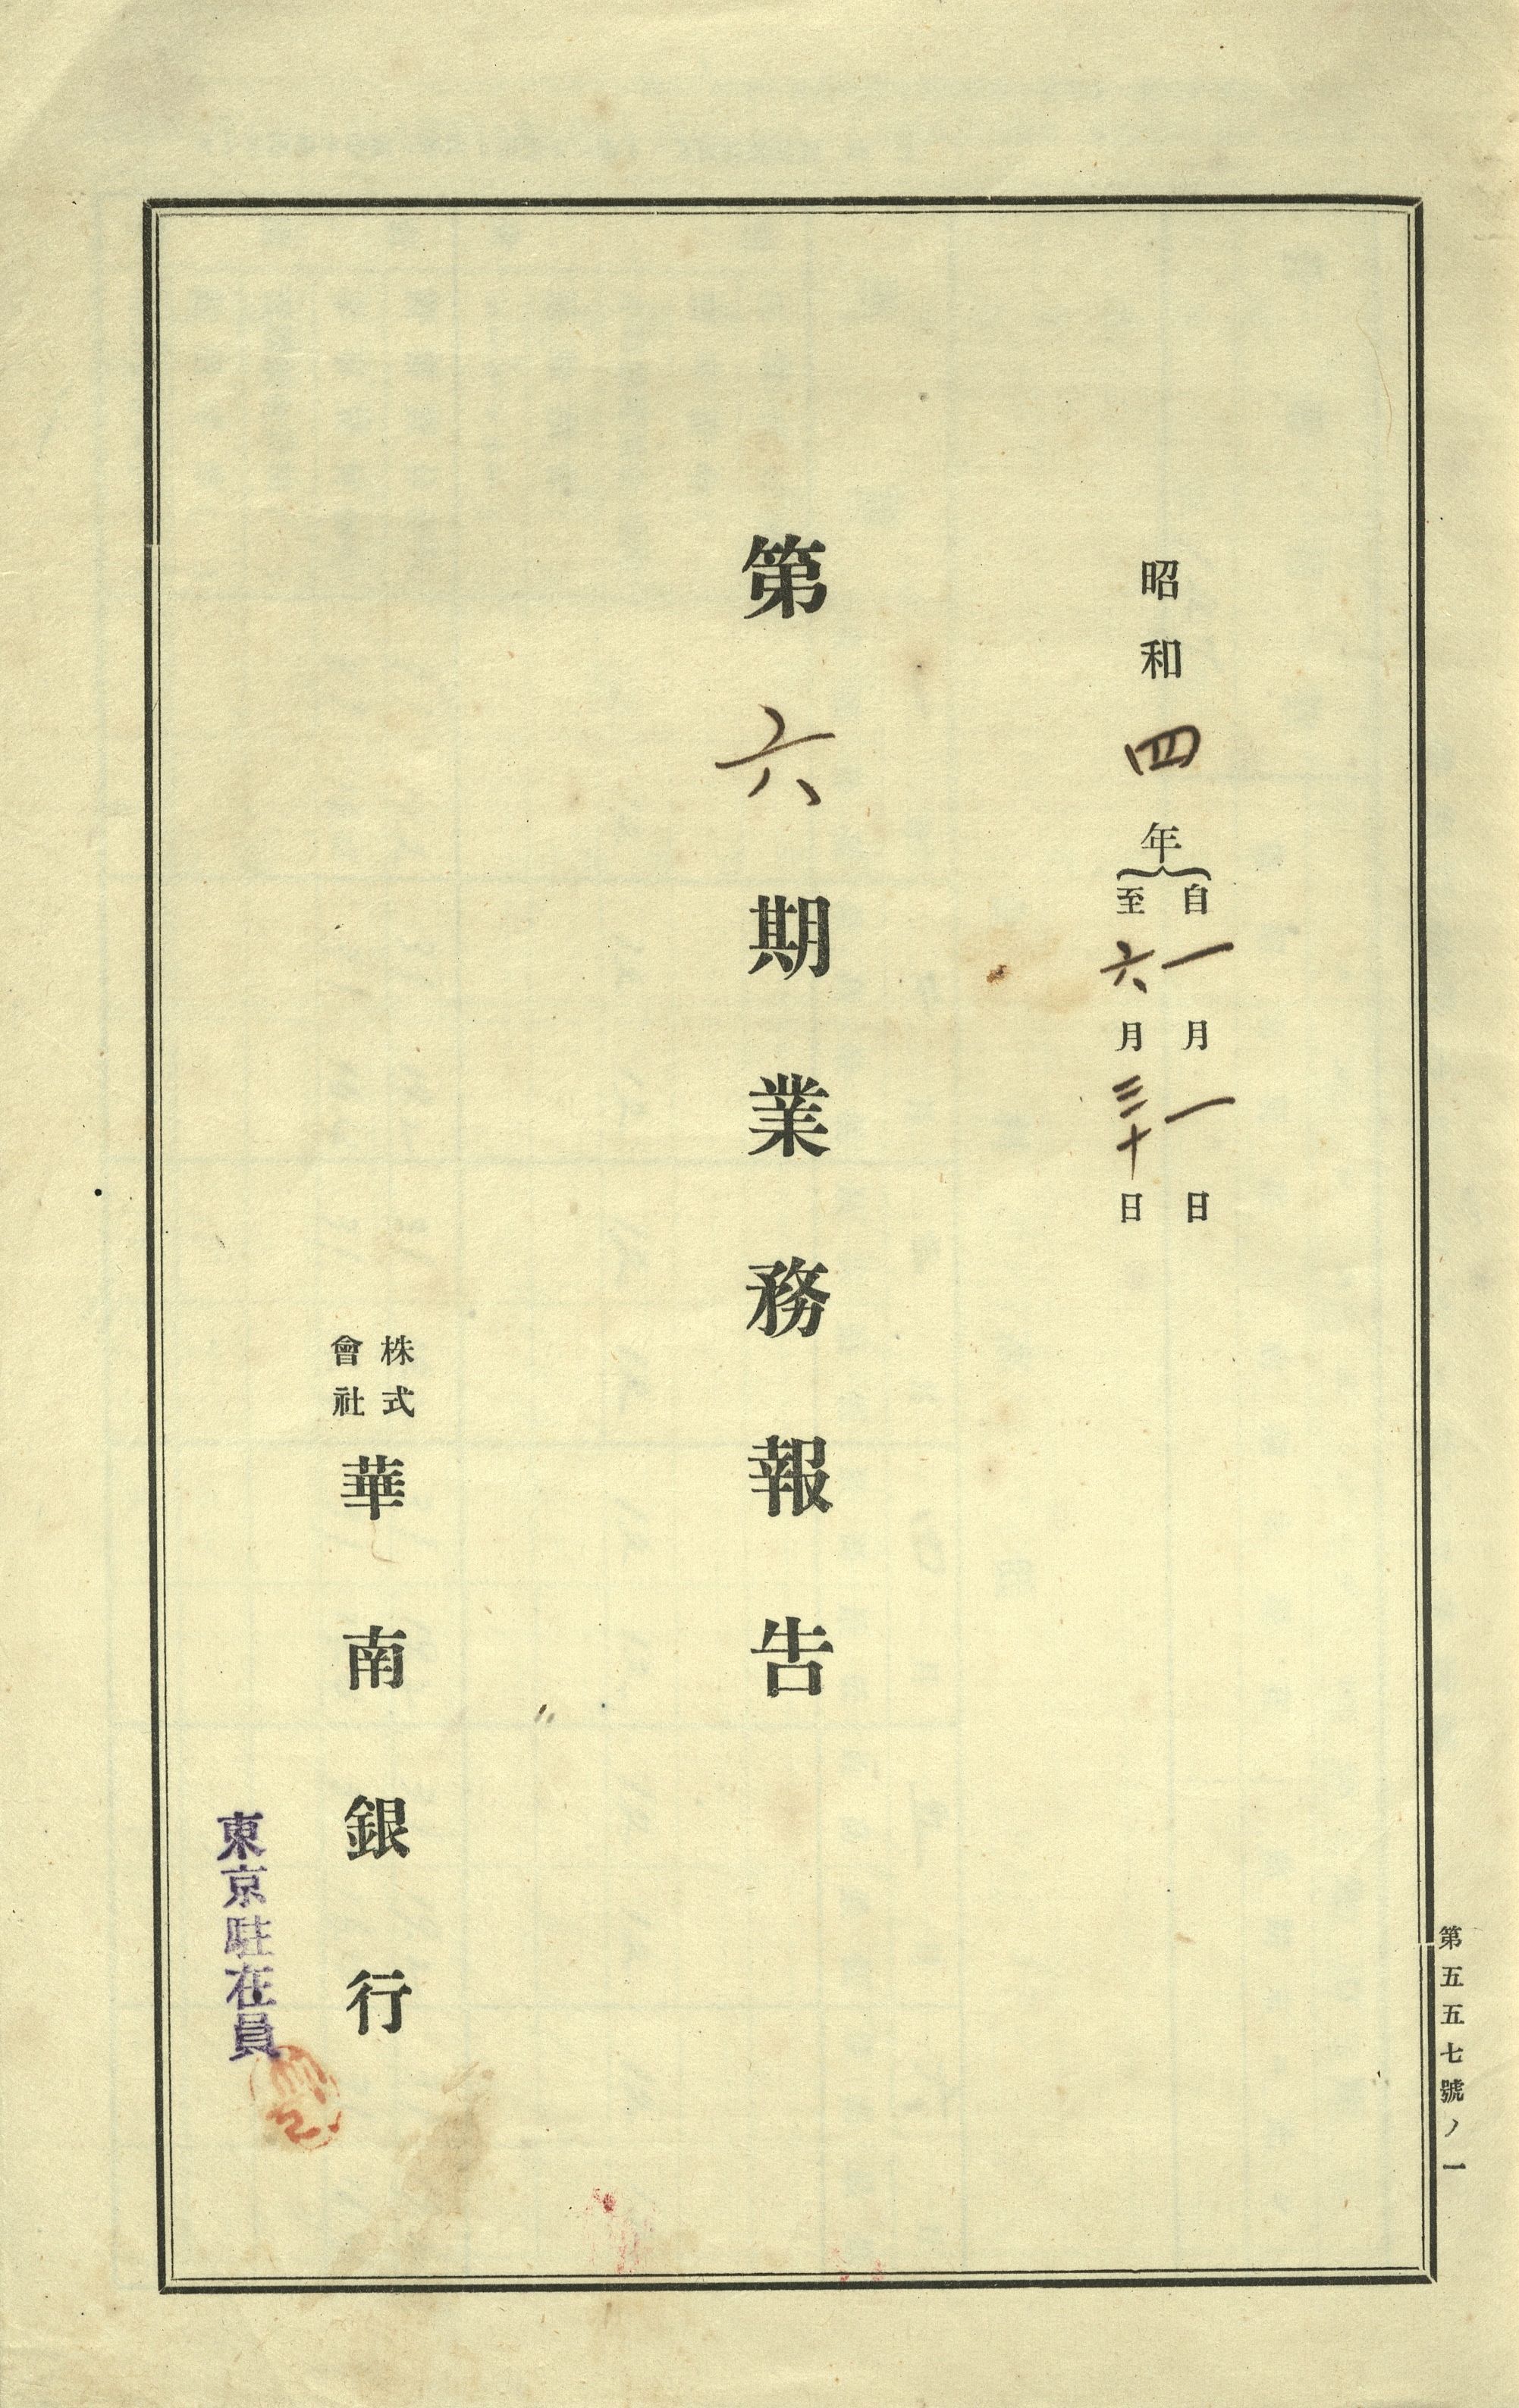 昭和四年
自一月一日
至六月三十日
第六期業務報告
株式
會社
華南銀行
東京駐在員
第五五七號ノ一